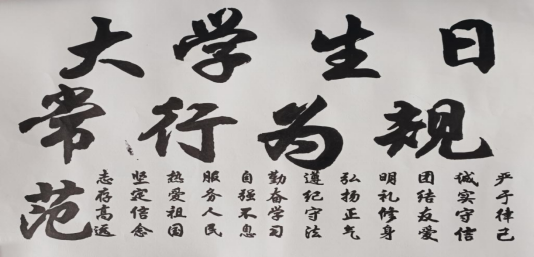 大学生日
常行为规
范
志存高远
坚定信念
热爱祖国
服务人民
自强不息
勤奋学习
遵纪守法
弘扬正气
明礼修身
团结友爱
诚实守信
严于律己